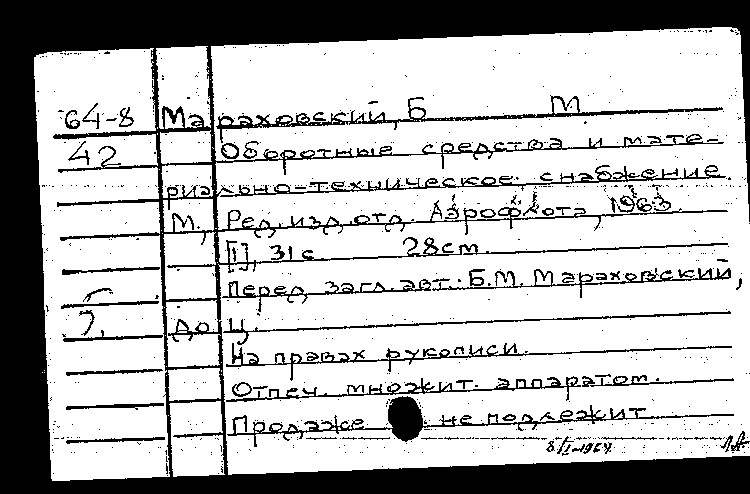 64-8 Мараховский, Б М
42 Оборотные средства и мате-
риально-техническое снабжение.
М., Ред. изд. отд. Аэрофлота, 1963.
[1], 31 с. 28 cm.
Перед загл. авт.: Б.М. Мараховский,
до ц.
На правах рукописи.
Отпеч. множит. аппаратом.
Продаже не подлежит
8/I-1964